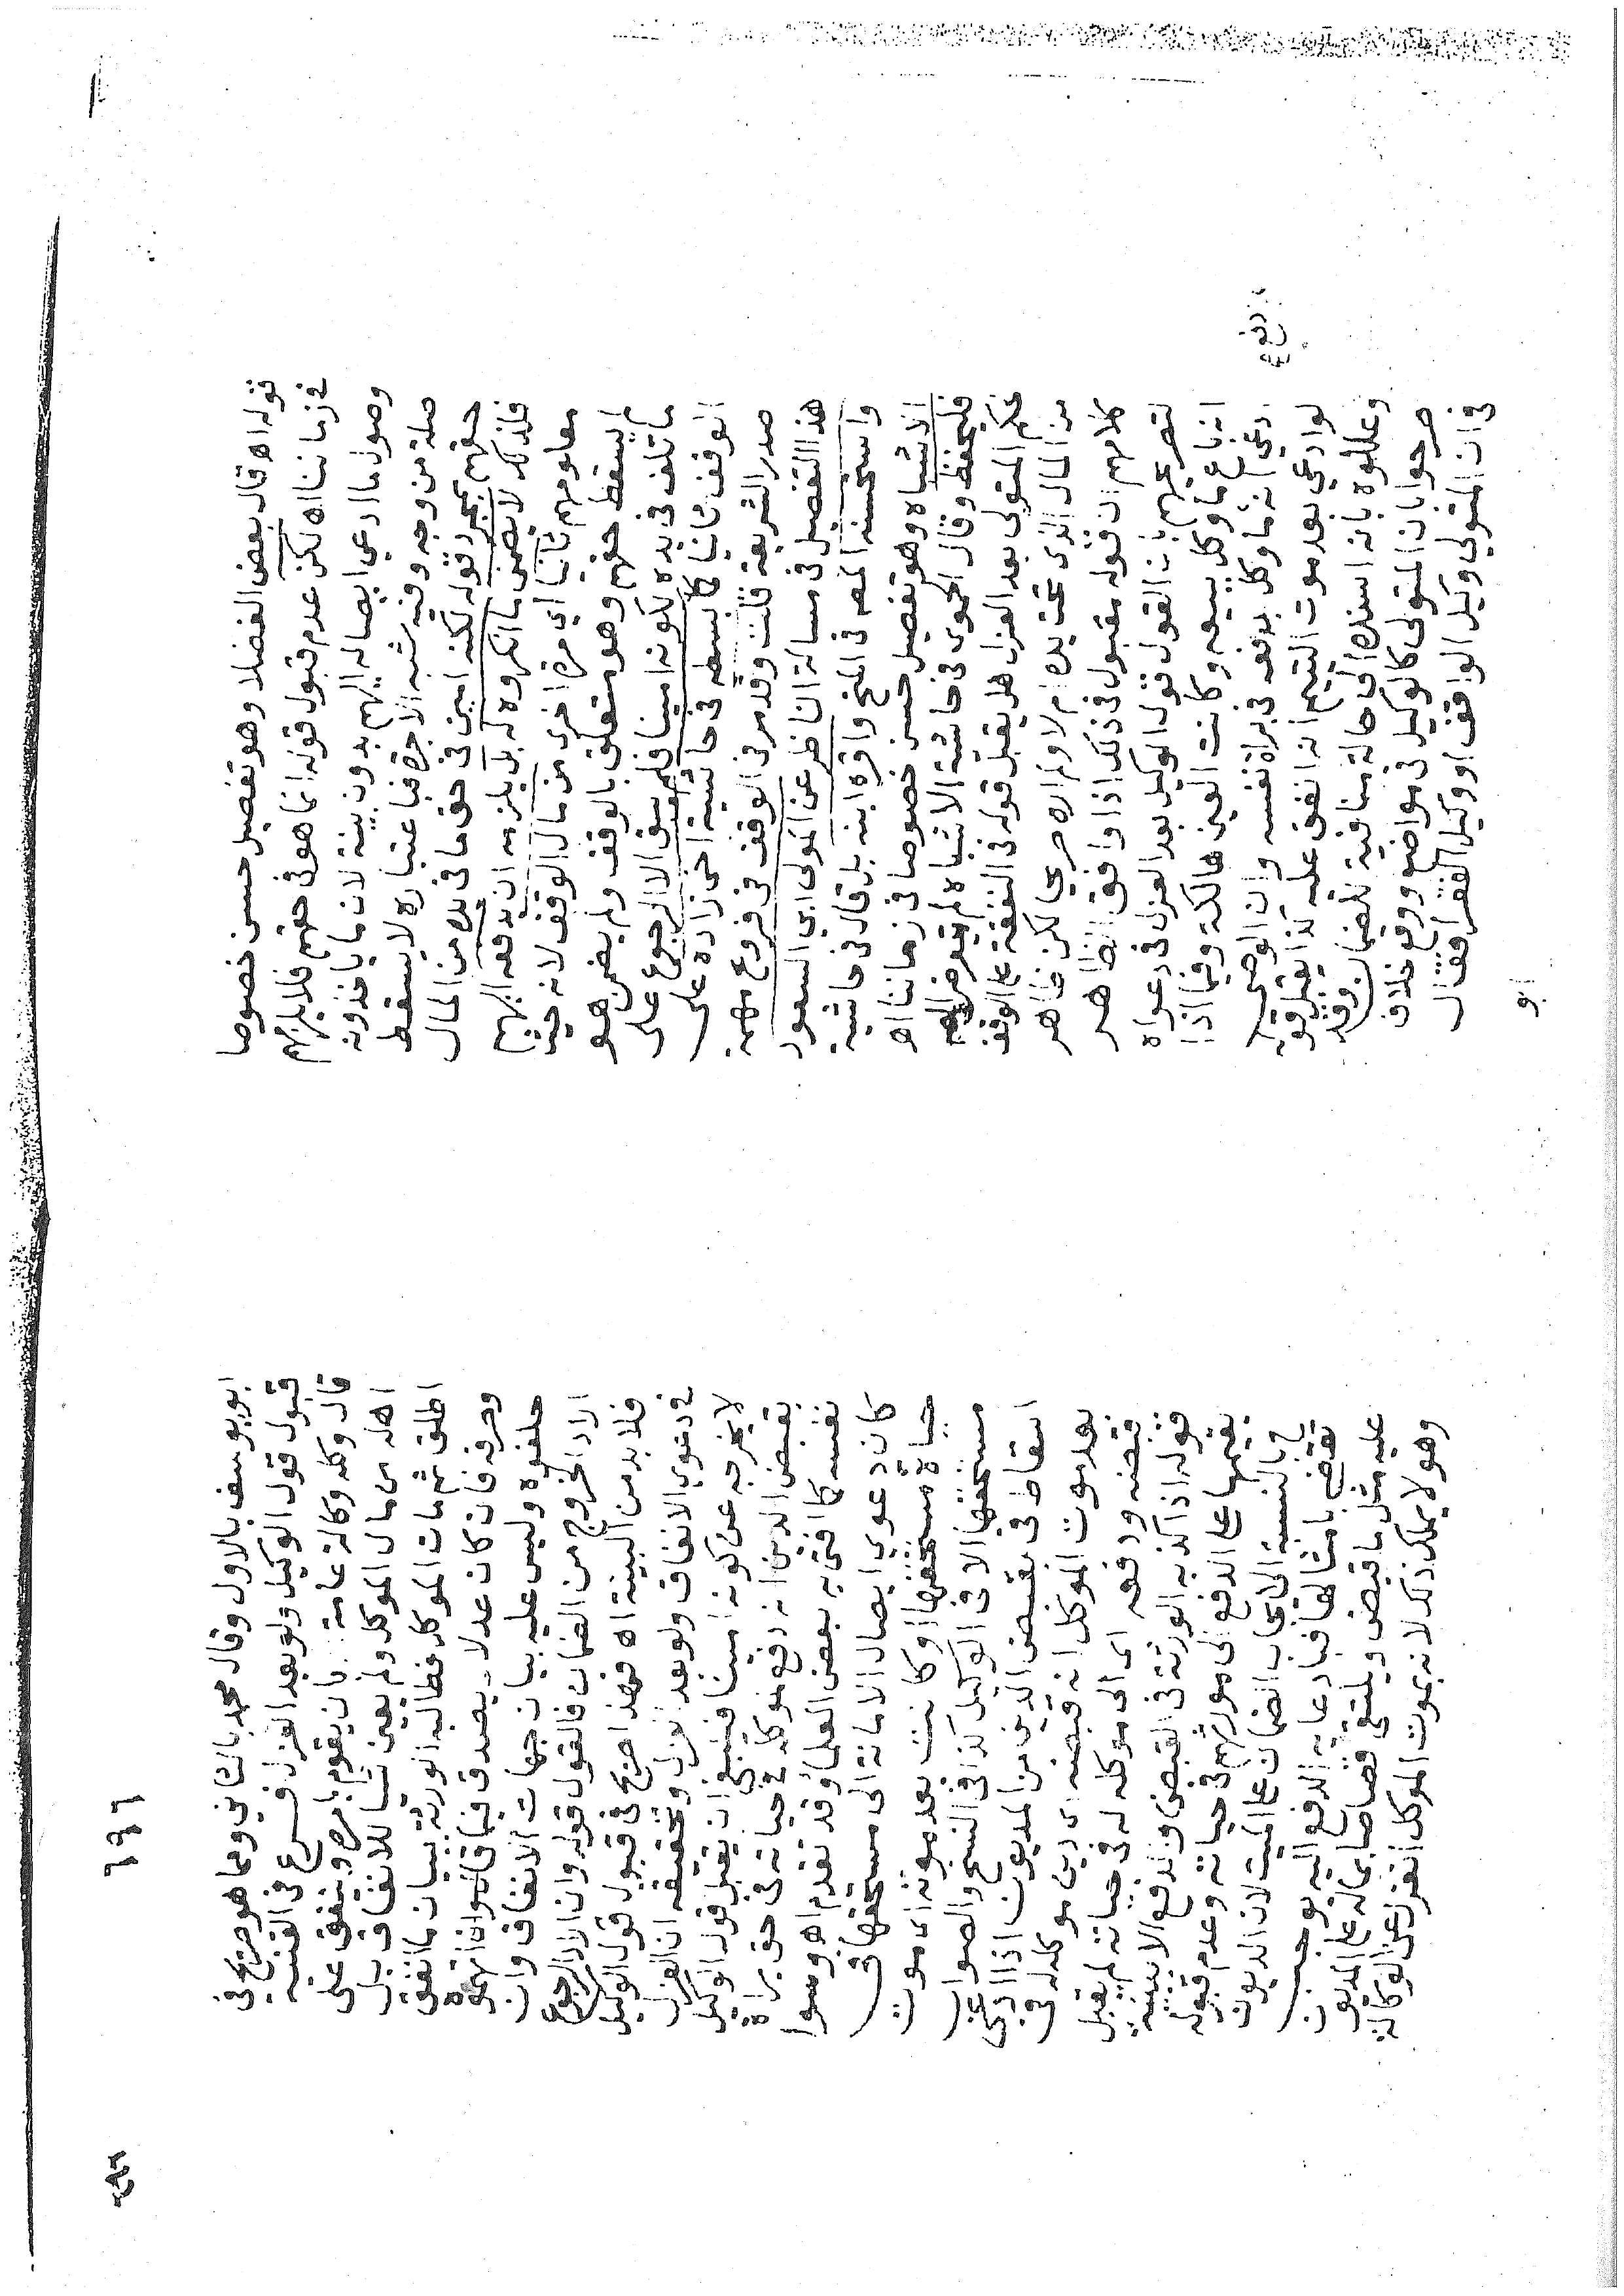 قوله اه قال بعض الفضلا وهو تفصيل حسن خصوصا
في زماننا اه لكن عدم قبول قوله انما هو في حقهم فلا يلزمهم
وصول ما ادعي ايصاله اليهم بدون بينة لان ما ياخذونه
صلة من وجه وفيه شبه الاجرة فباعتباره لا يسقط
حقهم بمجرد قوله لكنه امين في حق ما في يده من المال
فلذلك لا يضمن ما انكروه له بل يلزمه ان يدفعه اليهم
معلومهم ثانيا اي مرة اخرى من مال الوقف لانه حيث
لم يسقط حقهم وهو متعلق بالوقف ولم يضمن هو
ما تلف في يده لكونه امينا فلم يبق الا الرجوع على
الوقف ثانيا كما بسطه في حاشية اخى زاده على
صدر الشريعة قلت وقد مر في الوقف في فروع مهمة
هذا التفصيل في مسالة الناظر عن المولى ابي السعود
واستحسنه المصـ في المنح واقره ابنه بل قال في حاشية
الاشباه وهو تفصيل حسن خصوصا في زماننا اه
فليحفظ وقال الحموي في حاشية الاشباه لم يتعرض
لحكم المتولي بعد العزل هل يقبل قوله في النفقة على الوقف
من المال الذي تحت يده ام لا ولم اره صريحا لكن ظاهر
كلامهم ان قوله مقبول في ذلك اذا وافق الظاهر
لتصريحهم بان القول قول الوكيل بعد العزل في دعواه
انه باع ما وكل ببيعه وكانت العين هالكة وفيما اذا
ادعي انه ما وكل بدفعه في براة نفسه وان الوصي
لو ادعي بعد موت اليتيم انه انفق عليه كذا يقبل قوله
وعللوه بانه اسنده الى حالة منافية للضمان وقد
صرحوا بان المتولي كالوكيل في مواضع ووقع خلاف
في ان المتولي وكيل الواقف او وكيل الفقرا فقال
ابو
٦٩٦
ابو يوسف بالاول وقال محمد بالثاني ومما هو صريح في
قبول قول الوكيل ولو بعد العزل فرع في القنية
قال وكله وكالة عامة بان يقوم بامره وينفق على
اهله من مال الموكل ولم يعين شيا للانفاق بل
اطلق ثم مات الموكل فطالبه الورثة ببيان ما انفق
ومصرفه فان كان عدلا يصدق فيما قال وان اتهموه
حلفوه وليس عليه بيان جهات الانفاق وان
اراد الخروج من الضمان فالقول قوله وان اراد الرجوع
فلا بد من البينة اه فهذا صريح في قبول قول الوكيل
في دعوي الانفاق ولو بعد العزل وتحقيقه ان العزل
لا يخرجه عن كونه امينا فينبغي ان يقبل قول الوكيل
بقبض الدين انه دفع لموكله في حياته في حق براة
نفسه كما افتى به بعض العلما وقد تقدم اه وسوا
كان دعوي ايصال الامانة الى مستحقها في
حياة مستحقها او كانت بعد موته اي موت
مستحقها الا في الوكيل كذا في النسخ والصواب
اسقاط في بقبض الدين من المديون اذا ادعى
بعد موت الموكل انه قبضه اي دين موكله في
قبضه ودفعه اي الى موكله له في حياته لم يقبل
قوله اذا كذبه الورثة في القبض والدفع الا ببينة
يقيمها على الدفع الى مورثهم في حياته وعدم قبوله
ح بالنسبة الى ايجاب الضمان على الميت لان الديون
تقضى بامثالها فبادعايه الدفع اليه يوجب
عليه مثل ما قبض ويلتقي قصاصا بماله على المديون
وهو لا يملك ذلك لانه بموت الموكل انعزل عن الوكالة